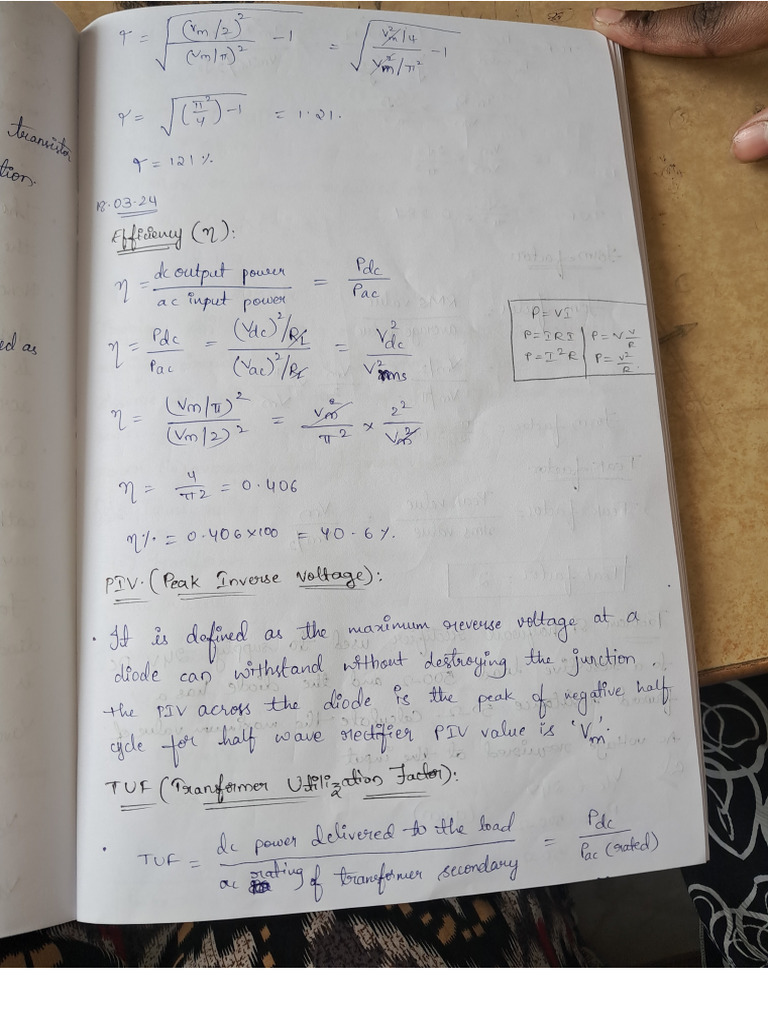 r = √((Vm/2)²/(Vm/π)² - 1) = √((Vm²/4)/(Vm²/π²) - 1)
r = √((π²/4) - 1) = 1.21.
r = 121%
transistor
tion.
12.03.24
Efficiency (η):
η = dc output power / ac input power = Pdc / Pac
P = VI
P = IRI | P = V V/R
P = I²R | P = V²/R.
ed as
η = Pdc / Pac = (Vdc)²/RL / (Vac)²/RL = V²dc / V²rms
η = (Vm/π)² / (Vm/2)² = Vm² / π² × 2² / Vm²
η = 4 / π2 = 0.406
η% = 0.406×100 = 40.6%.
PIV. (Peak Inverse Voltage):
• It is defined as the maximum reverse voltage at a
diode can withstand without destroying the junction.
the PIV across the diode is the peak of negative half
cycle for half wave rectifier PIV value is 'Vm'.
TUF (Transformer Utilization Factor):
• TUF = dc power delivered to the load / ac rating of transformer secondary = Pdc / Pac (rated)